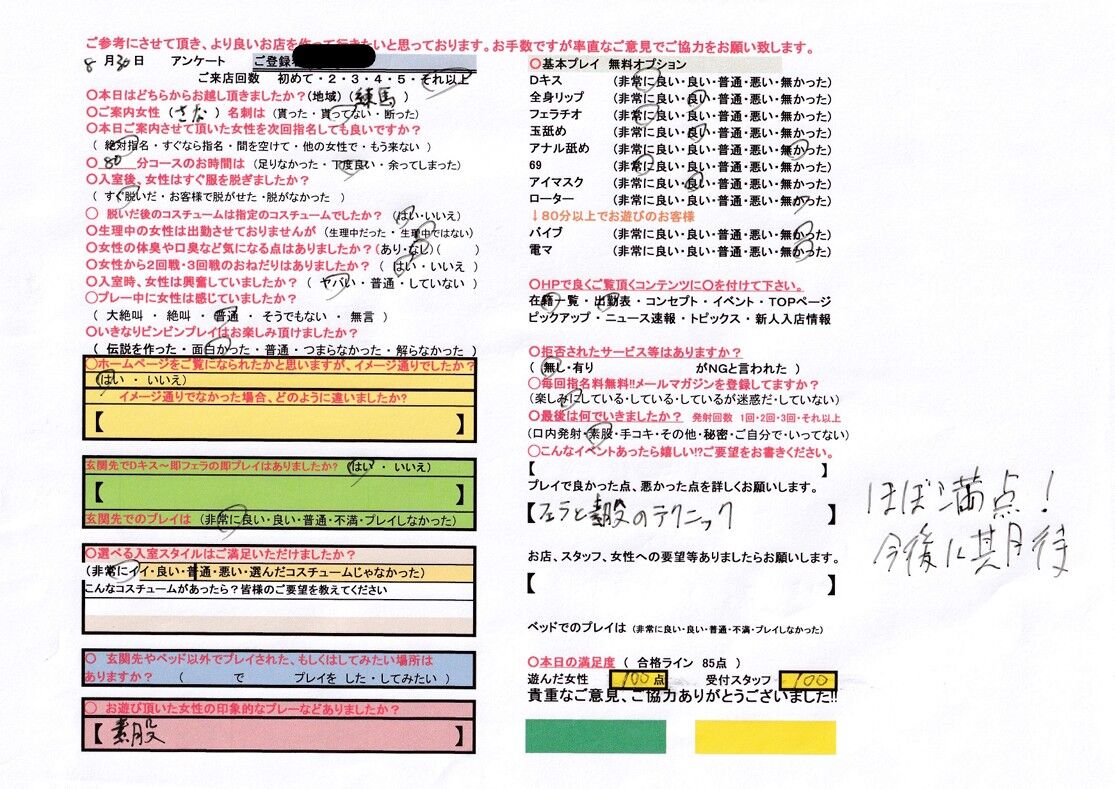 ご参考にさせて頂き、より良いお店を作って行きたいと思っております。お手数ですが率直なご意見でご協力をお願い致します。
8月30日 アンケート ご登録
ご来店回数 初めて・2・3・4・5・それ以上
〇本日はどちらからお越し頂きましたか？(地域)( 練馬 )
〇ご案内女性 ( さな ) 名刺は (貰った・貰ってない・断った)
〇本日ご案内させて頂いた女性を次回指名しても良いですか？
( 絶対指名・すぐなら指名・間を空けて・他の女性で・もう来ない )
〇 80 分コースのお時間は (足りなかった・丁度良い・余ってしまった)
〇入室後、女性はすぐ服を脱ぎましたか？
( すぐ脱いだ・お客様で脱がせた・脱がなかった )
〇 脱いだ後のコスチュームは指定のコスチュームでしたか？ (はい・いいえ)
〇生理中の女性は出勤させておりませんが (生理中だった・生理中ではない)
〇女性の体臭や口臭など気になる点はありましたか？(あり・なし)( )
〇女性から2回戦・3回戦のおねだりはありましたか？ ( はい・いいえ )
〇入室時、女性は興奮していましたか？ ( ヤバい・普通・していない )
〇プレー中に女性は感じていましたか？
( 大絶叫・ 絶叫・ 普通・ そうでもない ・ 無言 )
〇いきなりビンビンプレイはお楽しみ頂けましたか？
( 伝説を作った・面白かった・普通・つまらなかった・解らなかった )
〇ホームページをご覧になられたかと思いますが、イメージ通りでしたか？
(はい ・ いいえ)
イメージ通りでなかった場合、どのように違いましたか？
【 】
玄関先でDキス～即フェラの即プレイはありましたか？ (はい ・ いいえ)
【 】
玄関先でのプレイは (非常に良い・良い・普通・不満・プレイしなかった)
〇選べる入室スタイルはご満足いただけましたか？
(非常にイイ・良い・普通・悪い・選んだコスチュームじゃなかった)
こんなコスチュームがあったら？皆様のご要望を教えてください
〇 玄関先やベッド以外でプレイされた、もしくはしてみたい場所は
ありますか？ ( で プレイを した・してみたい )
〇 お遊び頂いた女性の印象的なプレーなどありましたか？
【 素股 】
〇基本プレイ 無料オプション
Dキス (非常に良い・良い・普通・悪い・無かった)
全身リップ (非常に良い・良い・普通・悪い・無かった)
フェラチオ (非常に良い・良い・普通・悪い・無かった)
玉舐め (非常に良い・良い・普通・悪い・無かった)
アナル舐め (非常に良い・良い・普通・悪い・無かった)
69 (非常に良い・良い・普通・悪い・無かった)
アイマスク (非常に良い・良い・普通・悪い・無かった)
ローター (非常に良い・良い・普通・悪い・無かった)
↓80分以上でお遊びのお客様
バイブ (非常に良い・良い・普通・悪い・無かった)
電マ (非常に良い・良い・普通・悪い・無かった)
〇HPで良くご覧頂くコンテンツに〇を付けて下さい。
在籍一覧・出勤表・コンセプト・イベント・TOPページ
ピックアップ・ニュース速報・トピックス・新人入店情報
〇拒否されたサービス等はありますか？
( 無し・有り がNGと言われた )
〇毎回指名料無料!!メールマガジンを登録してますか？
(楽しみにしている・している・しているが迷惑だ・していない)
〇最後は何でいきましたか？ 発射回数 1回・2回・3回・それ以上
(口内発射・素股・手コキ・その他・秘密・ご自分で・いってない)
〇こんなイベントあったら嬉しい!?ご要望をお書きください。
【 】
プレイで良かった点、悪かった点を詳しくお願いします。
【フェラと素股のテクニック 】
お店、スタッフ、女性への要望等ありましたらお願いします。
【 】
ベッドでのプレイは (非常に良い・良い・普通・不満・プレイしなかった)
〇本日の満足度 ( 合格ライン 85点 )
遊んだ女性 100点 受付スタッフ・ 100
貴重なご意見、ご協力ありがとうございました!!
ほぼ満点！
今後に期待